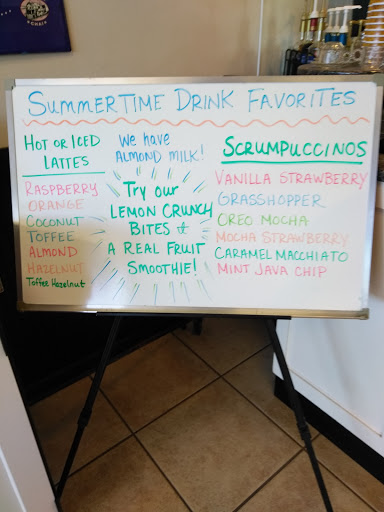 SUMMERTIME DRINK FAVORITES
HOT OR ICED
LATTES
RASPBERRY
ORANGE
COCONUT
TOFFEE
ALMOND
HAZELNUT
Toffee Hazelnut
We have
ALMOND MILK!
TRY OUR
LEMON CRUNCH
BITES &
A REAL FRUIT
SMOOTHIE!
SCRUMPUCCINOS
VANILLA STRAWBERRY
GRASSHOPPER
OREO MOCHA
MOCHA STRAWBERRY
CARAMEL MACCHIATO
MINT JAVA CHIP